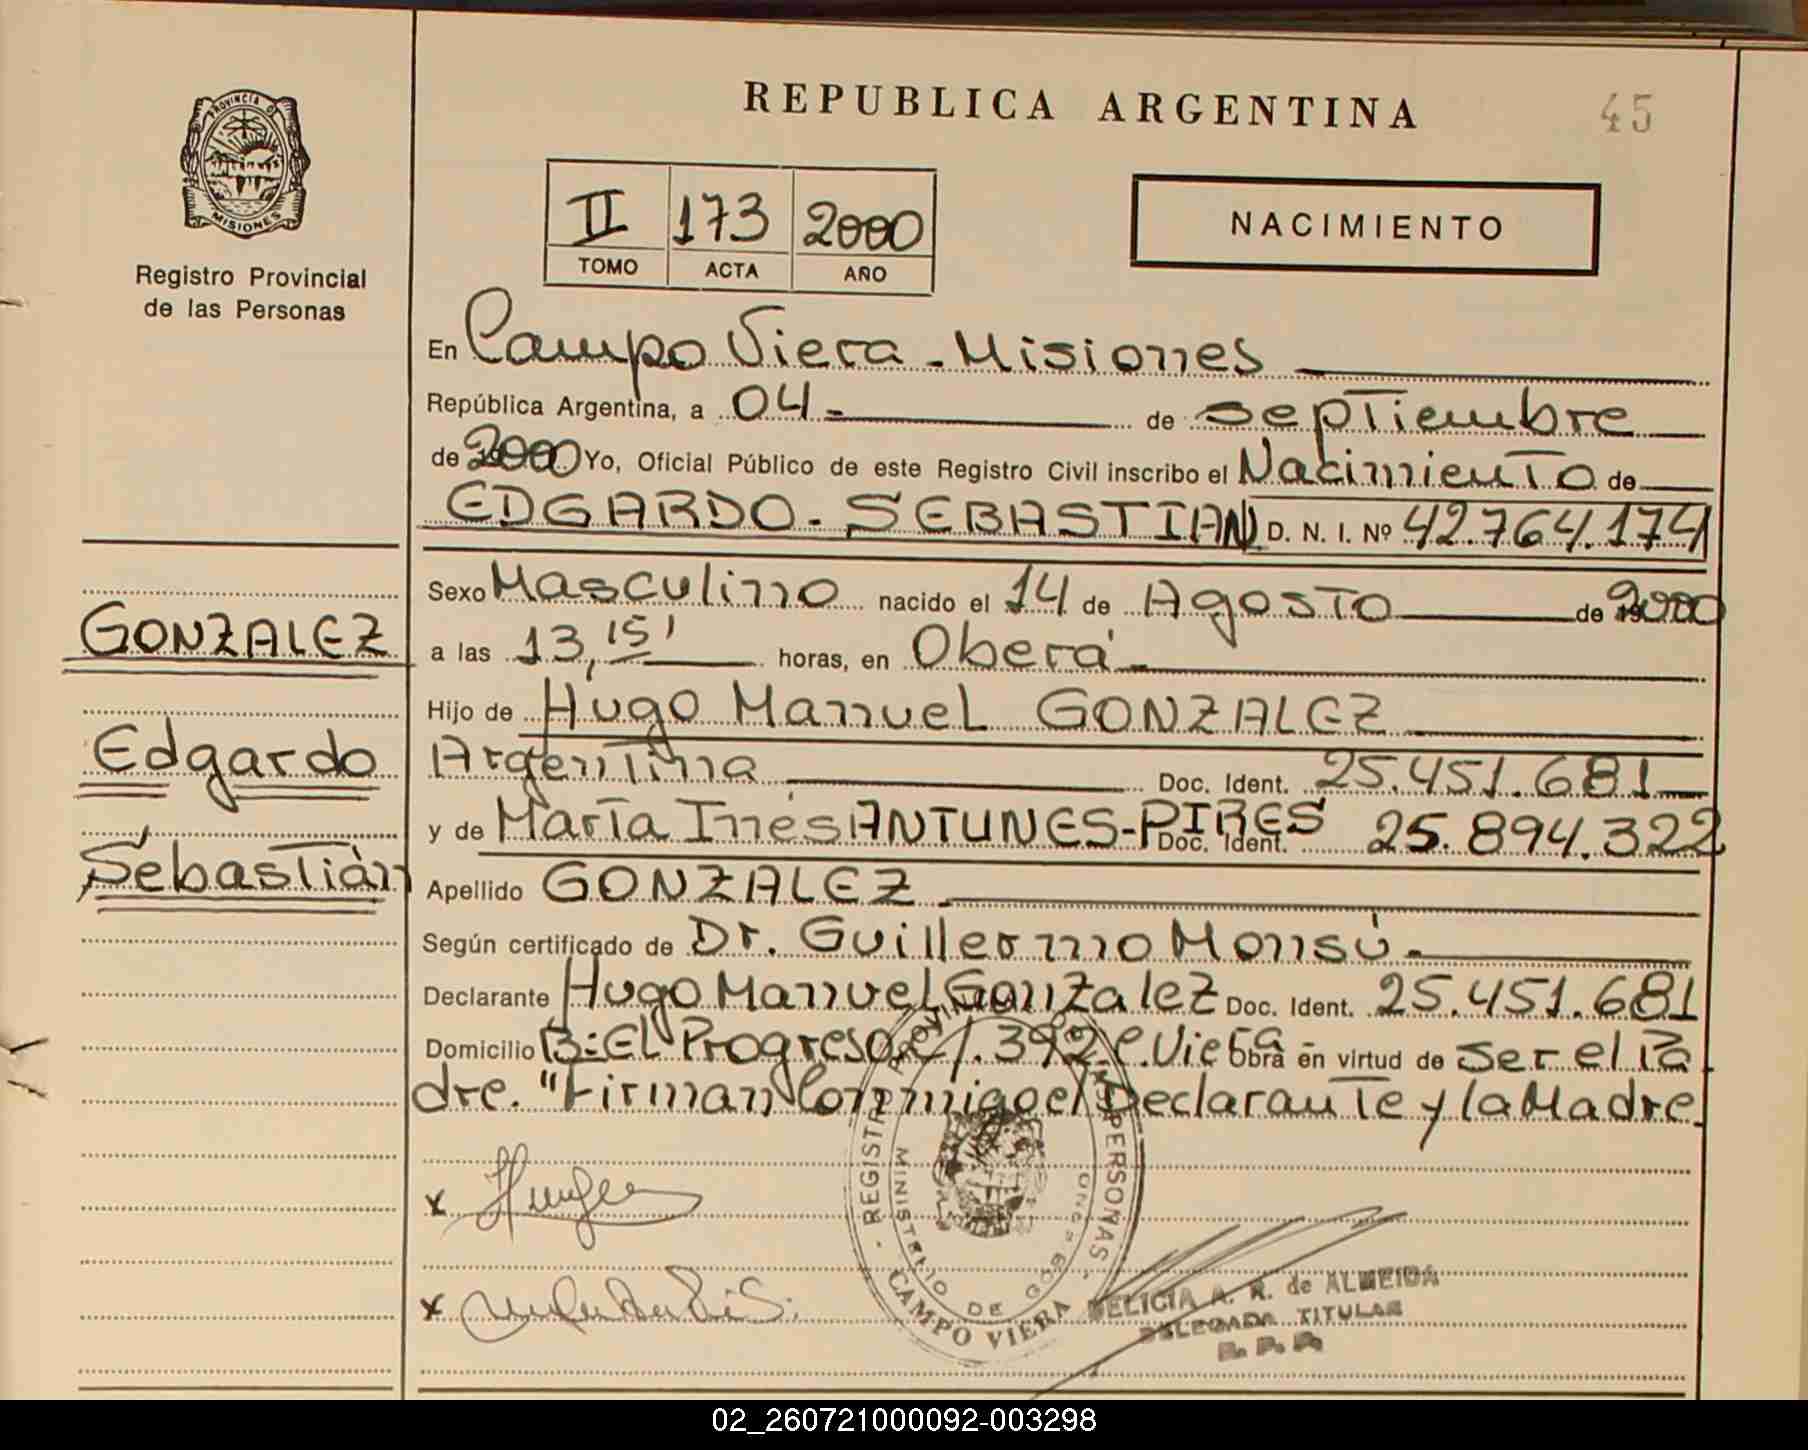 REPUBLICA ARGENTINA
45
PROVINCIA DE
MISIONES
Registro Provincial
de las Personas
II 173 2000
TOMO ACTA AÑO
NACIMIENTO
En Campo Viera - Misiones
República Argentina, a 04 - de septiembre
de 2000 Yo, Oficial Público de este Registro Civil inscribo el Nacimiento de
EDGARDO - SEBASTIAN D. N. I. Nº 42.764.174
Sexo Masculino nacido el 14 de Agosto de 19 2000
GONZALEZ
a las 13,15' horas, en Oberá -
Hijo de Hugo Manuel GONZALEZ
Edgardo
Argentina Doc. Ident. 25.451.681
y de María Inés ANTUNES - PIRES Doc. Ident. 25.894.322
Sebastián
Apellido GONZALEZ
Según certificado de Dr. Guillermo Monsú -
Declarante Hugo Manuel Gonzalez Doc. Ident. 25.451.681
Domicilio B: El Progreso c/. 392 C. Viera obra en virtud de ser el Pa
dre. "Firman Conmigo el Declarante y la Madre
x
x
REGISTRO PROVINCIAL DE LAS PERSONAS
MINISTERIO DE GOB
CAMPO VIERA
DELICIA A. R. de ALMEIDA
DELEGADA TITULAR
R. P. P.
02_260721000092-003298